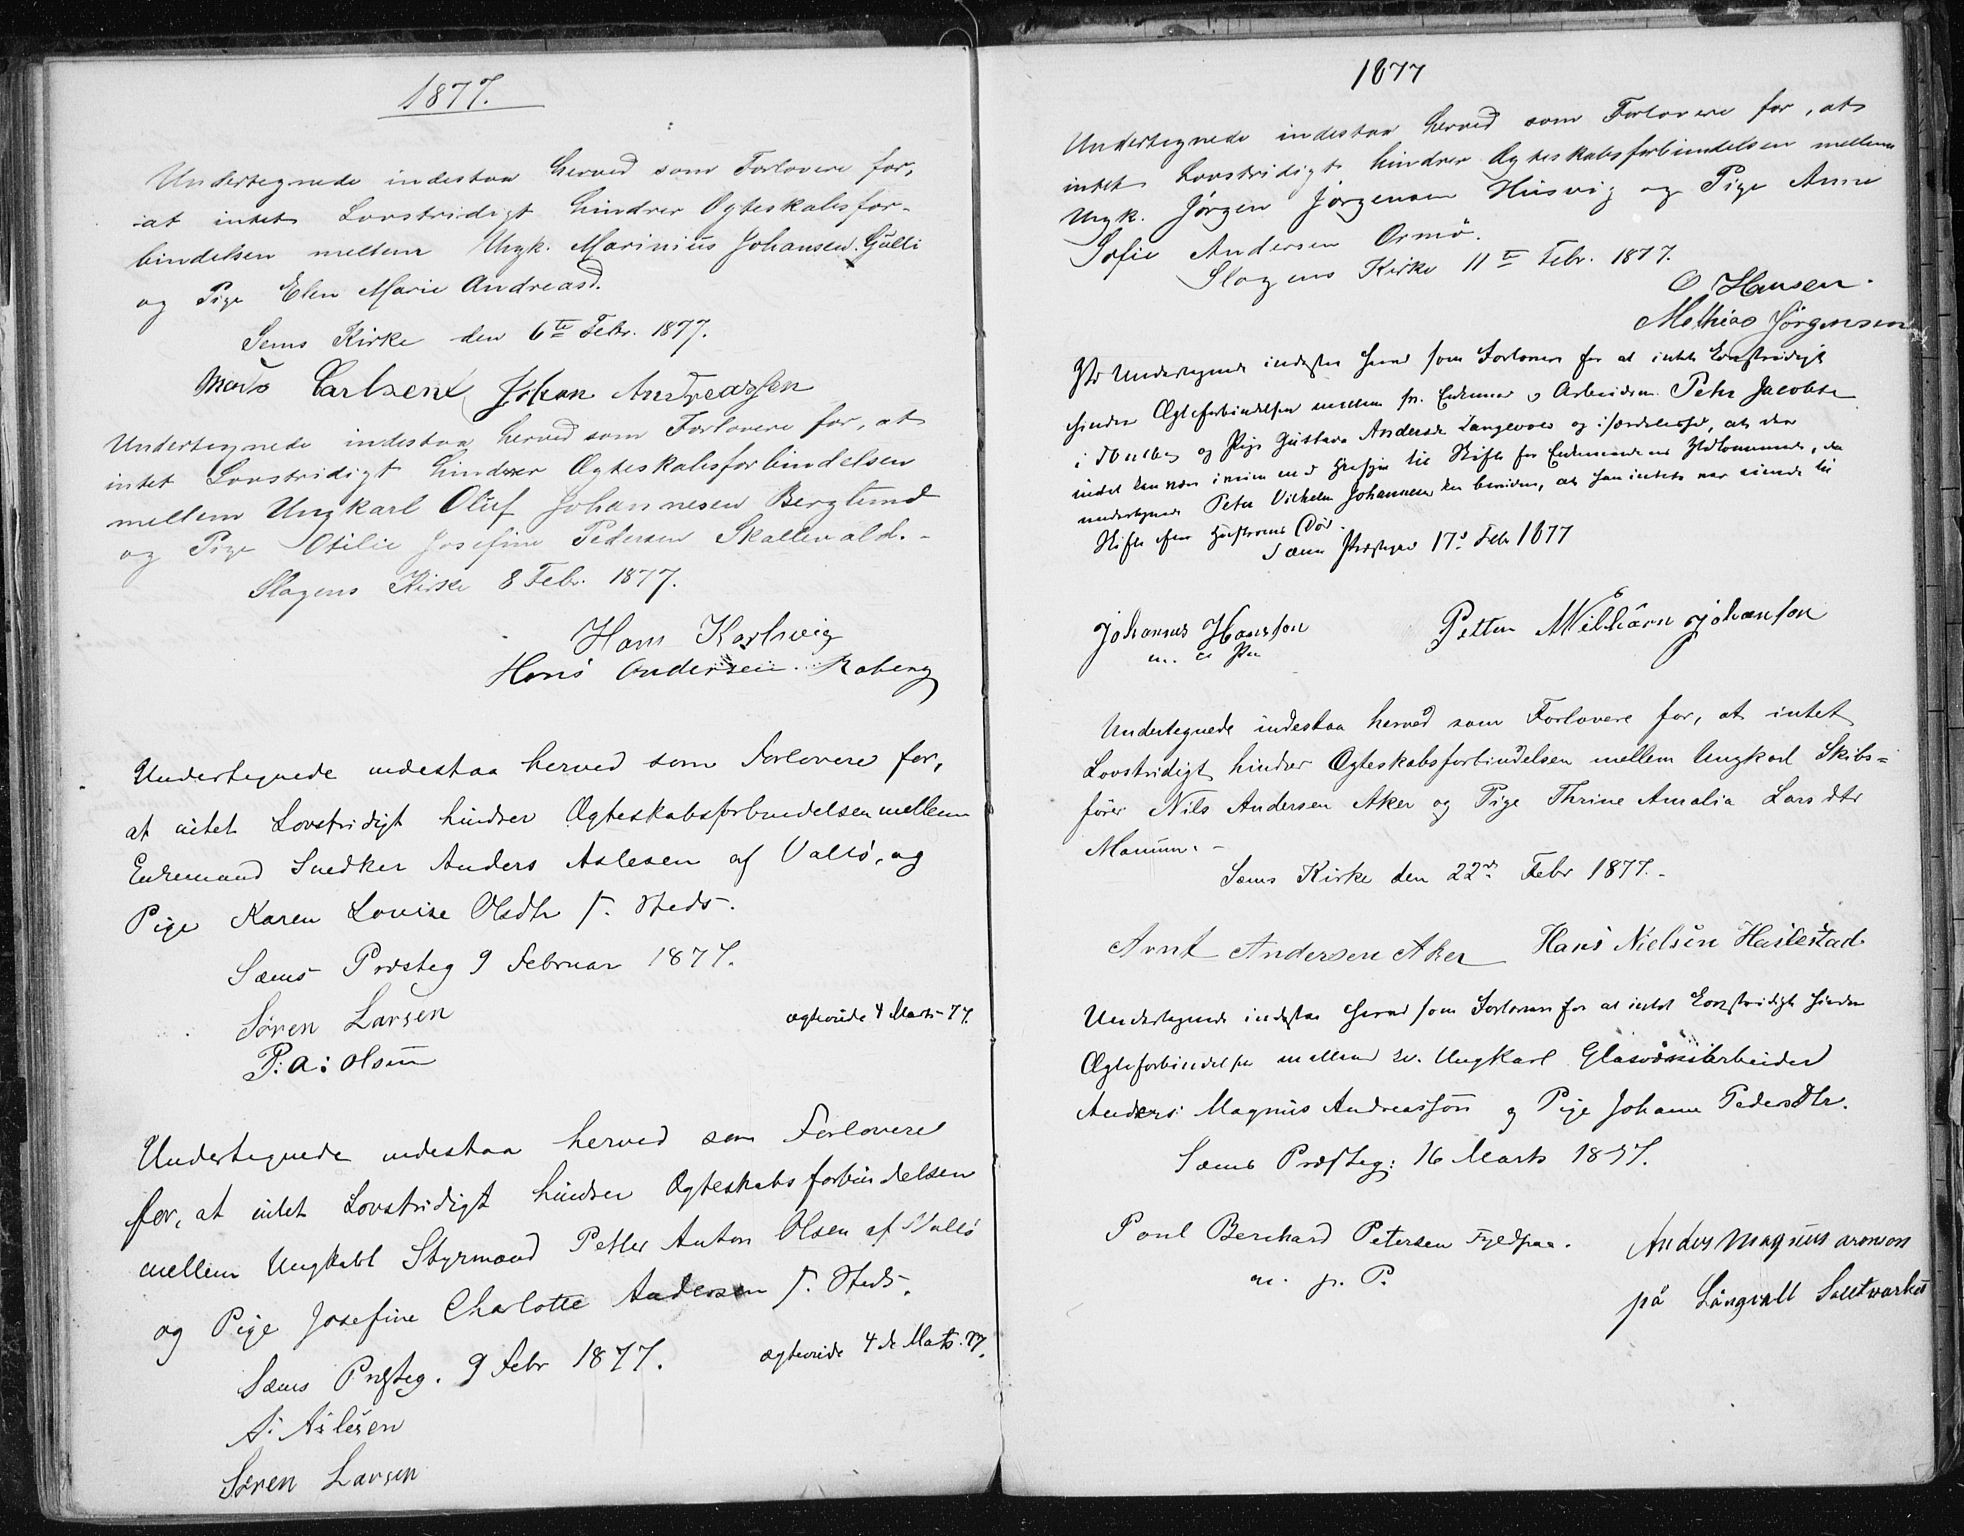 1877.
Undertegnede indestaa herved som Forlovere for,
at intet Lovstridigt hindrer Ægteskabsfor-
bindelsen mellem Ungk. Marinius Johansen Gulli
og Pige Elen Marie Andreasd.
Sems Kirke den 6te Febr. 1877.
Mads Carlsen Johan Andreassen
Undertegnede indestaa herved som Forlovere for, at
intet Lovstridigt hindrer Ægteskabsforbindelsen
mellem Ungkarl Oluf Johannesen Berglund
og Pige Otilie Josefine Pedersen Skallevald.-
Slagens Kirke 8 Febr. 1877.
Hans
Hans Andersen Roberg
Undertegnede indestaa herved som Forlovere for,
at intet Lovstridigt hindrer Ægteskabsforbindelsen mellem
Enkemand Snedker Anders Aslesen af Vallö, og
Pige Karen Lovise Olsdtr s. Steds.
Sæms Præsteg 9 Februar 1877.
Sören Larsen
ægteviede 4 Marts 77.
P: A: Olsen
Undertegnede indestaa herved som Forlovere
for, at intet Lovstridigt hindrer Ægteskabsforbindelsen
mellem Ungkarl Styrmand Petter Anton Olsen af Vallö
og Pige Josefine Charlotte Andersen s. Steds.
Sæms Præsteg. 9 Febr 1877.
ægteviede 4 de Marts. 77.
A: Aslesen
Sören Larsen
1877
Undertegnede indestaa herved som Forlovere for, at
intet Lovstridigt hindrer Ægteskabsforbindelsen mellem
Ungk. Jørgen Jørgensen Husvig og Pige Anne
Sofie Andersen Ormö.
Slagens Kirke 11te Febr. 1877.
O Hansen.
Mathias Jørgensen
Undertegnede indestaa herved som Forlovere for at intet Lovstridigt
hindrer Ægteforbindelsen mellem Enkemand og Arbeidsm. Peter Jacobsen
og Pige Gustava Andersdr og, at der
intet til Skifte for Enkemandens, da
undertegnede Peter Vilhelm Johannesen kan bevidne, at han intet
Skifte efter Hustruens Død.
Sæms Præstegrd 17d Feb 1877
Johannes Hansson Petter Wilhärn Johanson
m. p. Pen
Undertegnede indestaa herved som Forlovere for, at intet
Lovstridigt hindrer Ægteskabsforbindelsen mellem Ungkarl Skibs=
fører Nils Andersen Aker og Pige Thrine Amalia Larsdtr
Manum. -
Sæms Kirke den 22de Febr 1877.-
Arnt Andersen Aker Hans Nielsen Haslestad
Undertegnede indestaa herved som Forlovere for at intet Lovstridigt hindrer
Ægteforbindelsen mellem sv. Ungkarl Glasværksarbeider
Anders Magnus Andreasson og Pige Johanne Pedersdtr.
Sæms Præsteg: 16 Marts 1877.
Poul Bernhard Petersen
m. p. P.
Anders Magnus aronson
på Långvall Saltvarket